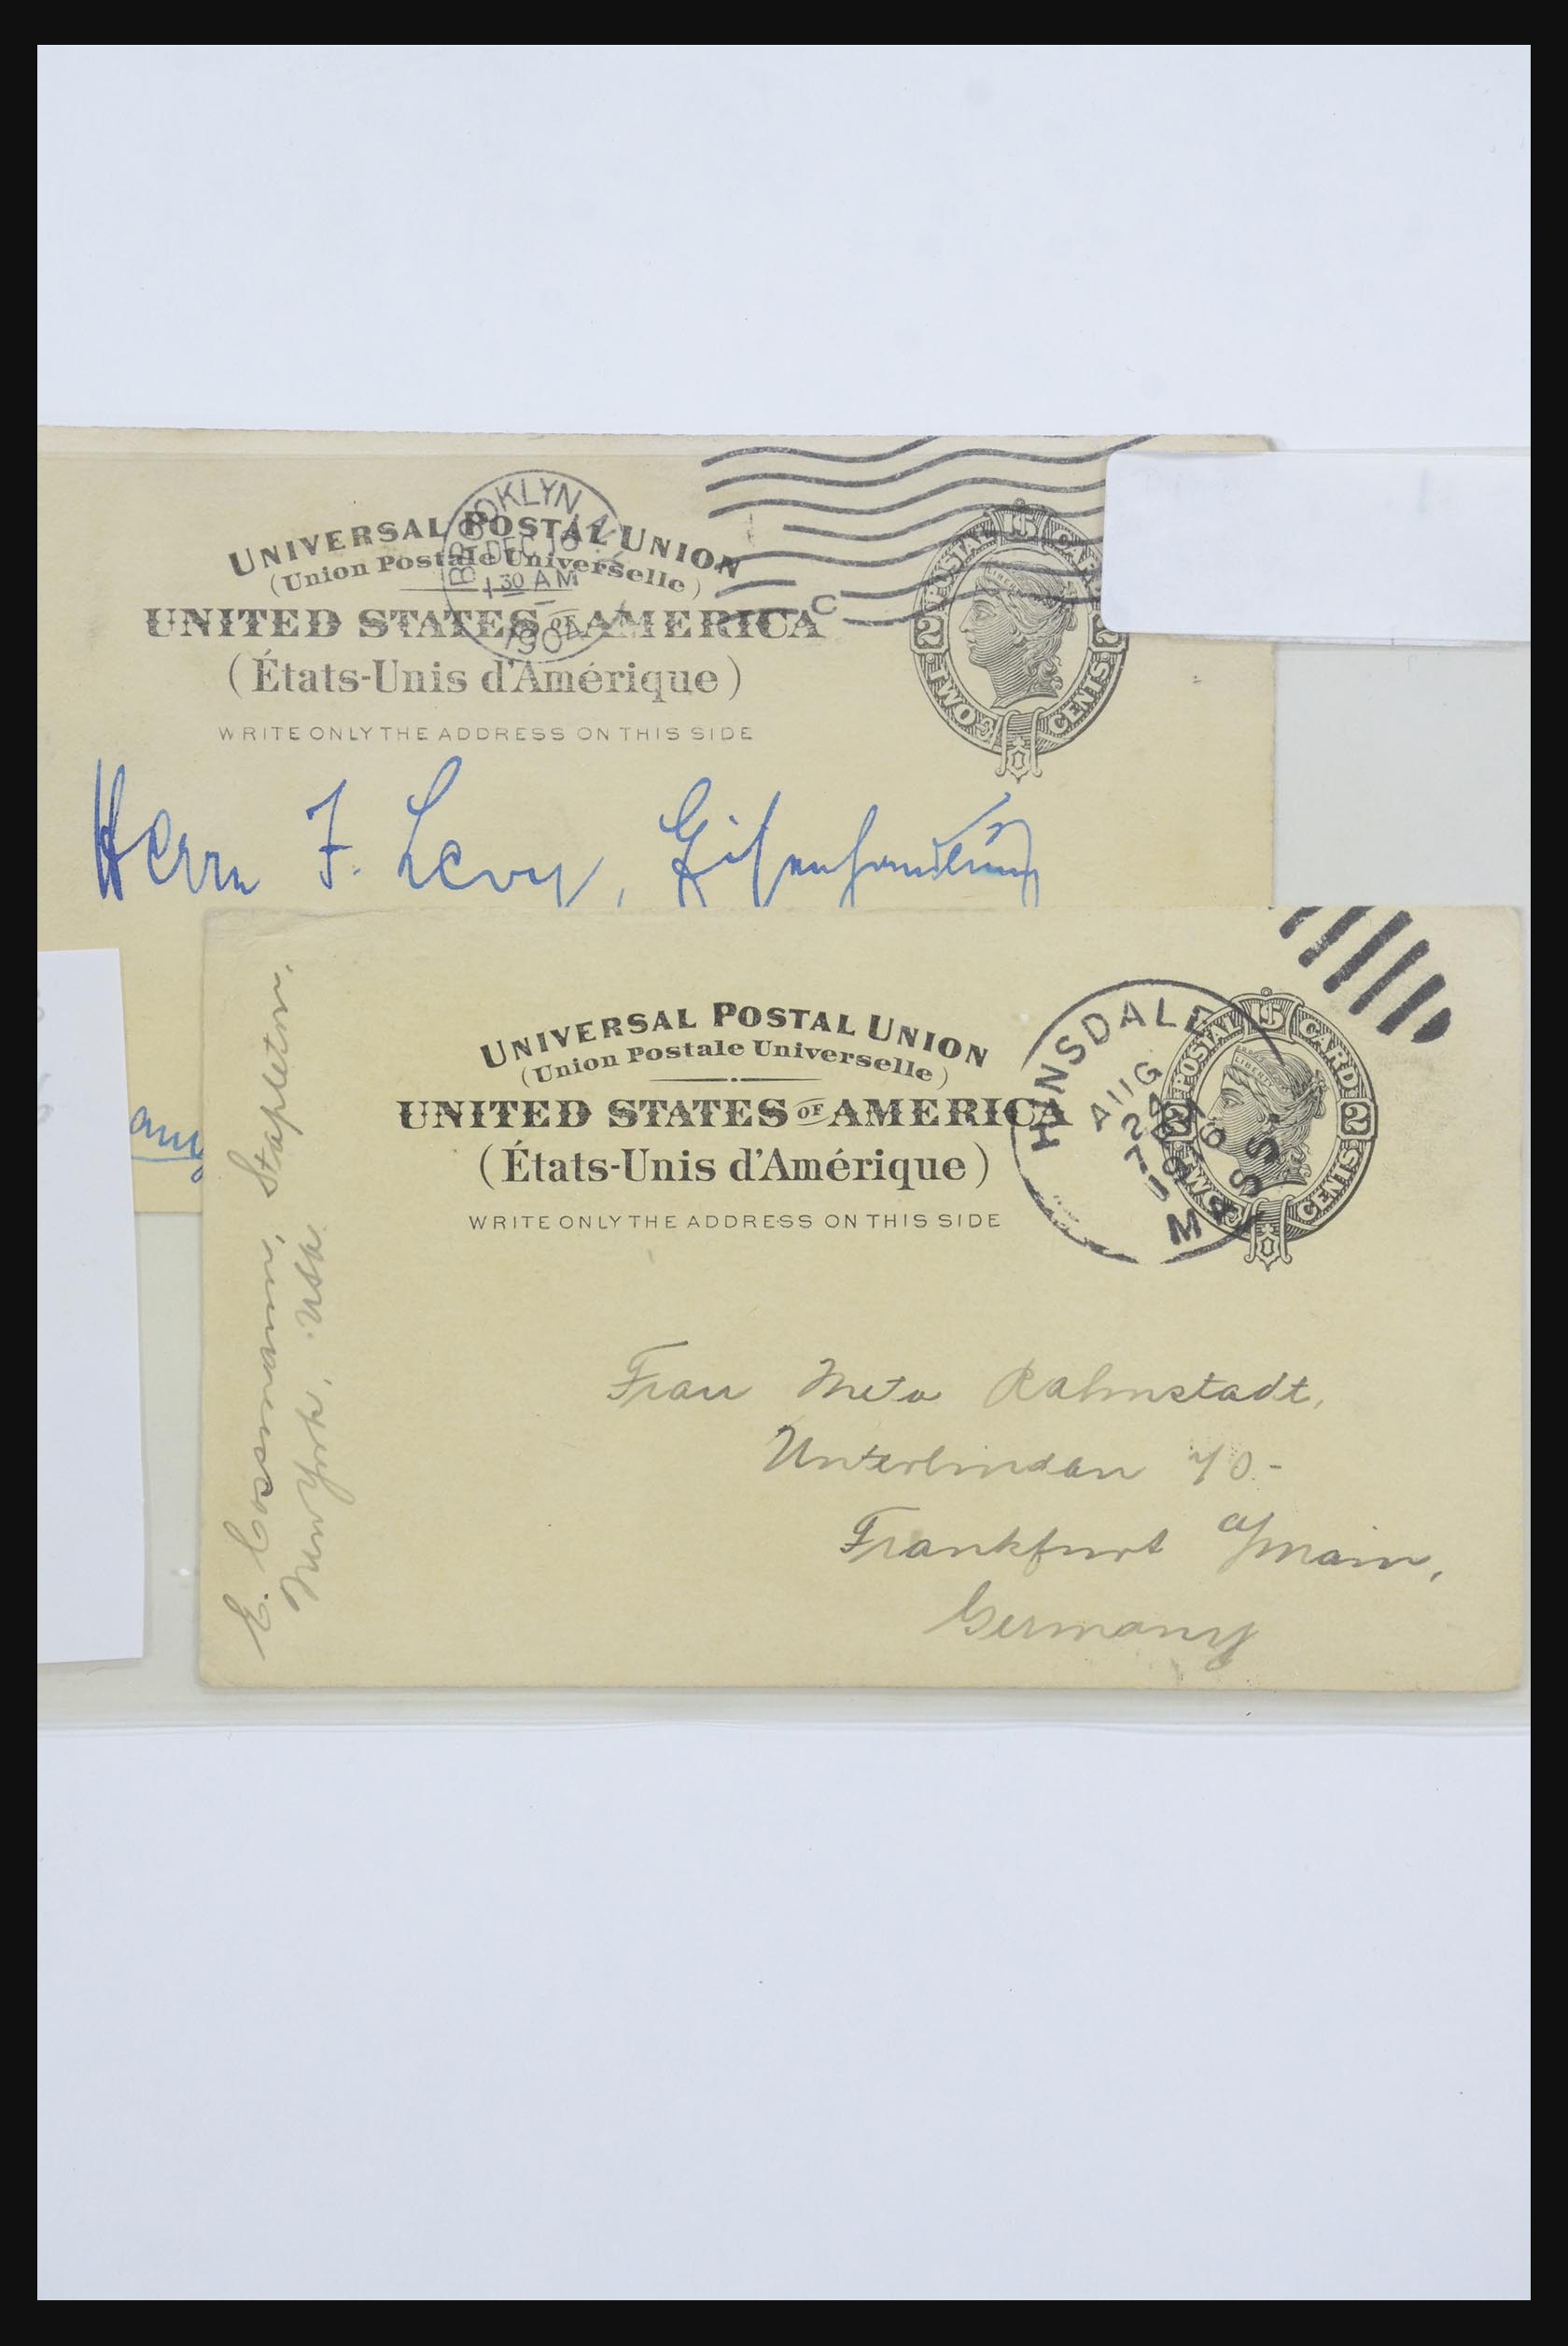 BROOKLYN
DEC 10
1 30 AM
1904
C
UNIVERSAL POSTAL UNION
(Union Postale Universelle)
UNITED STATES OF AMERICA
(États-Unis d'Amérique)
WRITE ONLY THE ADDRESS ON THIS SIDE
U.S. POSTAL CAR
LIBERTY
2 2
TWO CENTS
Herrn F. Levy, Eisenhandlung
E. Cossmann, Stapleton,
New York, USA.
UNIVERSAL POSTAL UNION
(Union Postale Universelle)
UNITED STATES OF AMERICA
(États-Unis d'Amérique)
WRITE ONLY THE ADDRESS ON THIS SIDE
HINSDALE
AUG
24
MASS.
U.S. POSTAL CARD
LIBERTY
2 2
TWO CENTS
Frau Meta Rahmstadt,
Unterlindau 70-
Frankfurt a/Main,
Germany